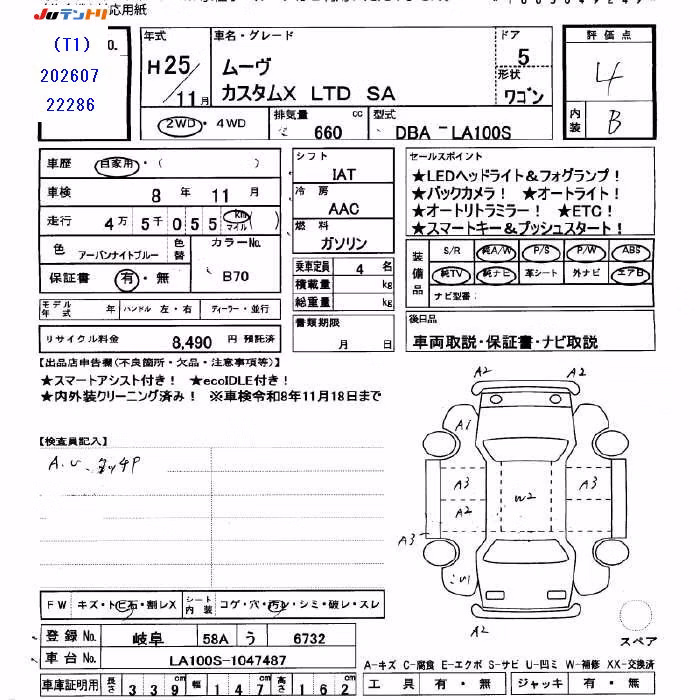 Juテントリ
応用紙
(T1)
202607
22286
O.
年式
H25/11月
車名・グレード
ムーヴ
カスタムX LTD SA
ドア
5
形状
ワゴン
評価点
4
内装
B
2WD・4WD
排気量
660 cc
型式
DBA-LA100S
車歴 自家用・( )
車検 8年 11月
走行 4万5千055 km マイル ( )
色 アーバンナイトブルー
色替
カラーNo.
B70
保証書 有・無
シフト
IAT
冷房
AAC
燃料
ガソリン
乗車定員 4名
積載量 kg
総重量 kg
セールスポイント
★LEDヘッドライト&フォグランプ!
★バックカメラ! ★オートライト!
★オートリトラミラー! ★ETC!
★スマートキー&プッシュスタート!
装備品
S/R 純A/W P/S P/W ABS
純TV 純ナビ 革シート 外ナビ エアB
ナビ型番:
モデル年式 年 ハンドル 左・右 ディーラー・並行
リサイクル料金 8,490円 預託済
書類期限
月 日
後日品
車両取説・保証書・ナビ取説
【出品店申告欄(不良箇所・欠品・注意事項等)】
★スマートアシスト付き! ★ecoIDLE付き!
★内外装クリーニング済み! ※車検令和8年11月18日まで
【検査員記入】
A.U.タッチP
A2
A2
A1
A3
A2
W2
A3
A3
A2
FW キズ・トビ石・割レX
シート内装 コゲ・穴・汚レ・シミ・破レ・スレ
登録No. 岐阜 58A う 6732
車台No. LA100S-1047487
車庫証明用 長さ 339cm 幅 147cm 高さ 162cm
スペア
A-キズ C-腐食 E-エクボ S-サビ U-凹ミ W-補修 XX-交換済
工具 有・無 ジャッキ 有・無